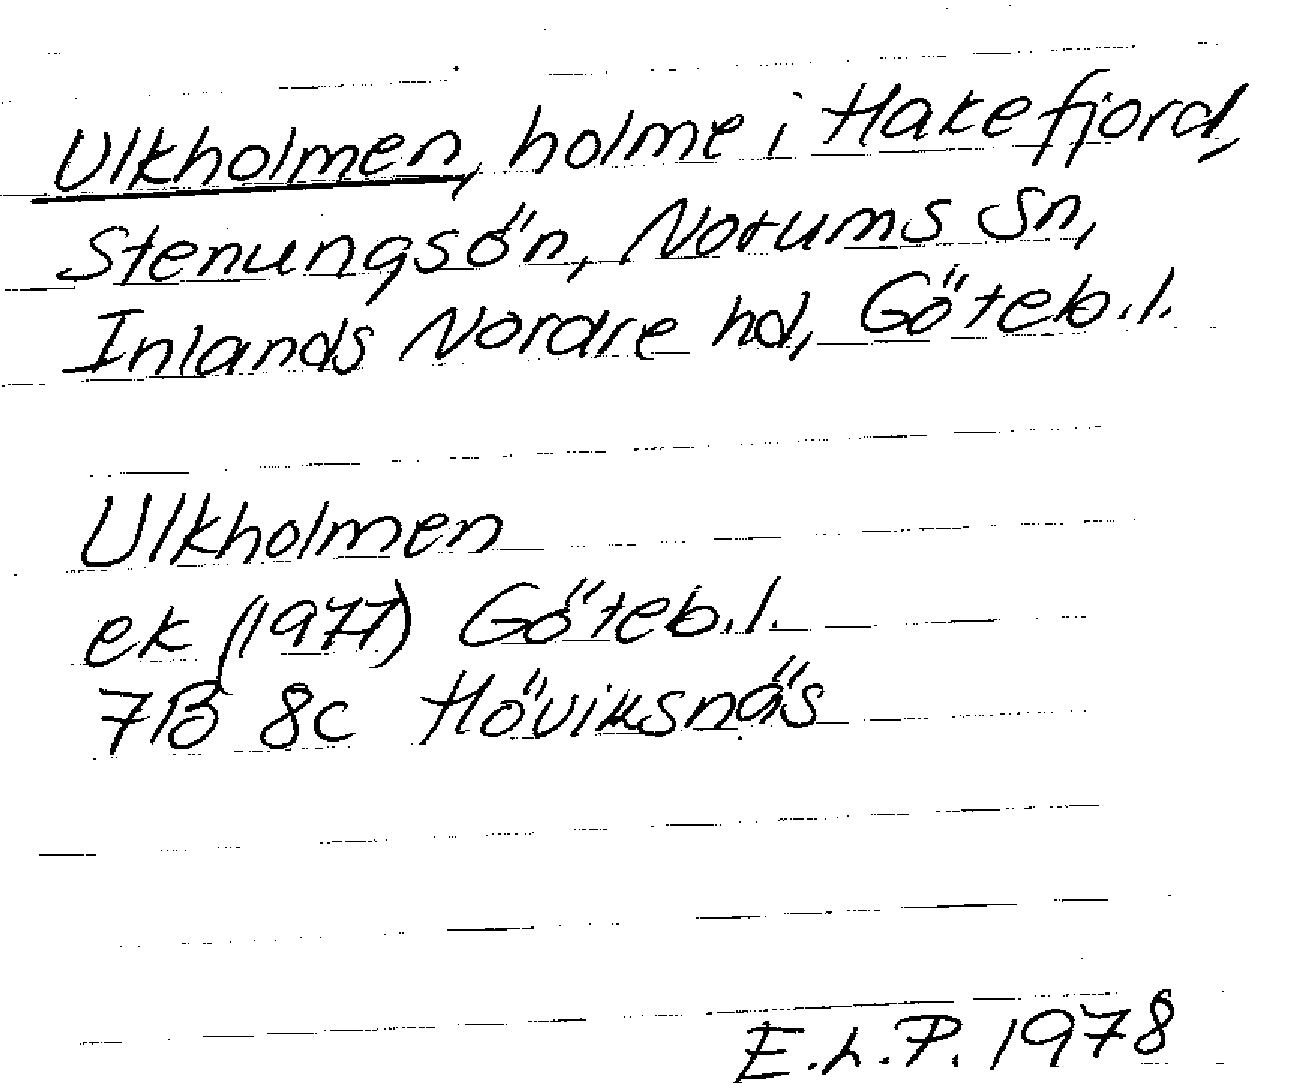 Ulkholmen, holme i Hakefjord,
Stenungsön, Norums Sn,
Inlands Nordre hd, Göteb.l.
Ulkholmen
ek (1977) Göteb.l.
7B 8c Höviksnäs
E.L.P. 1978